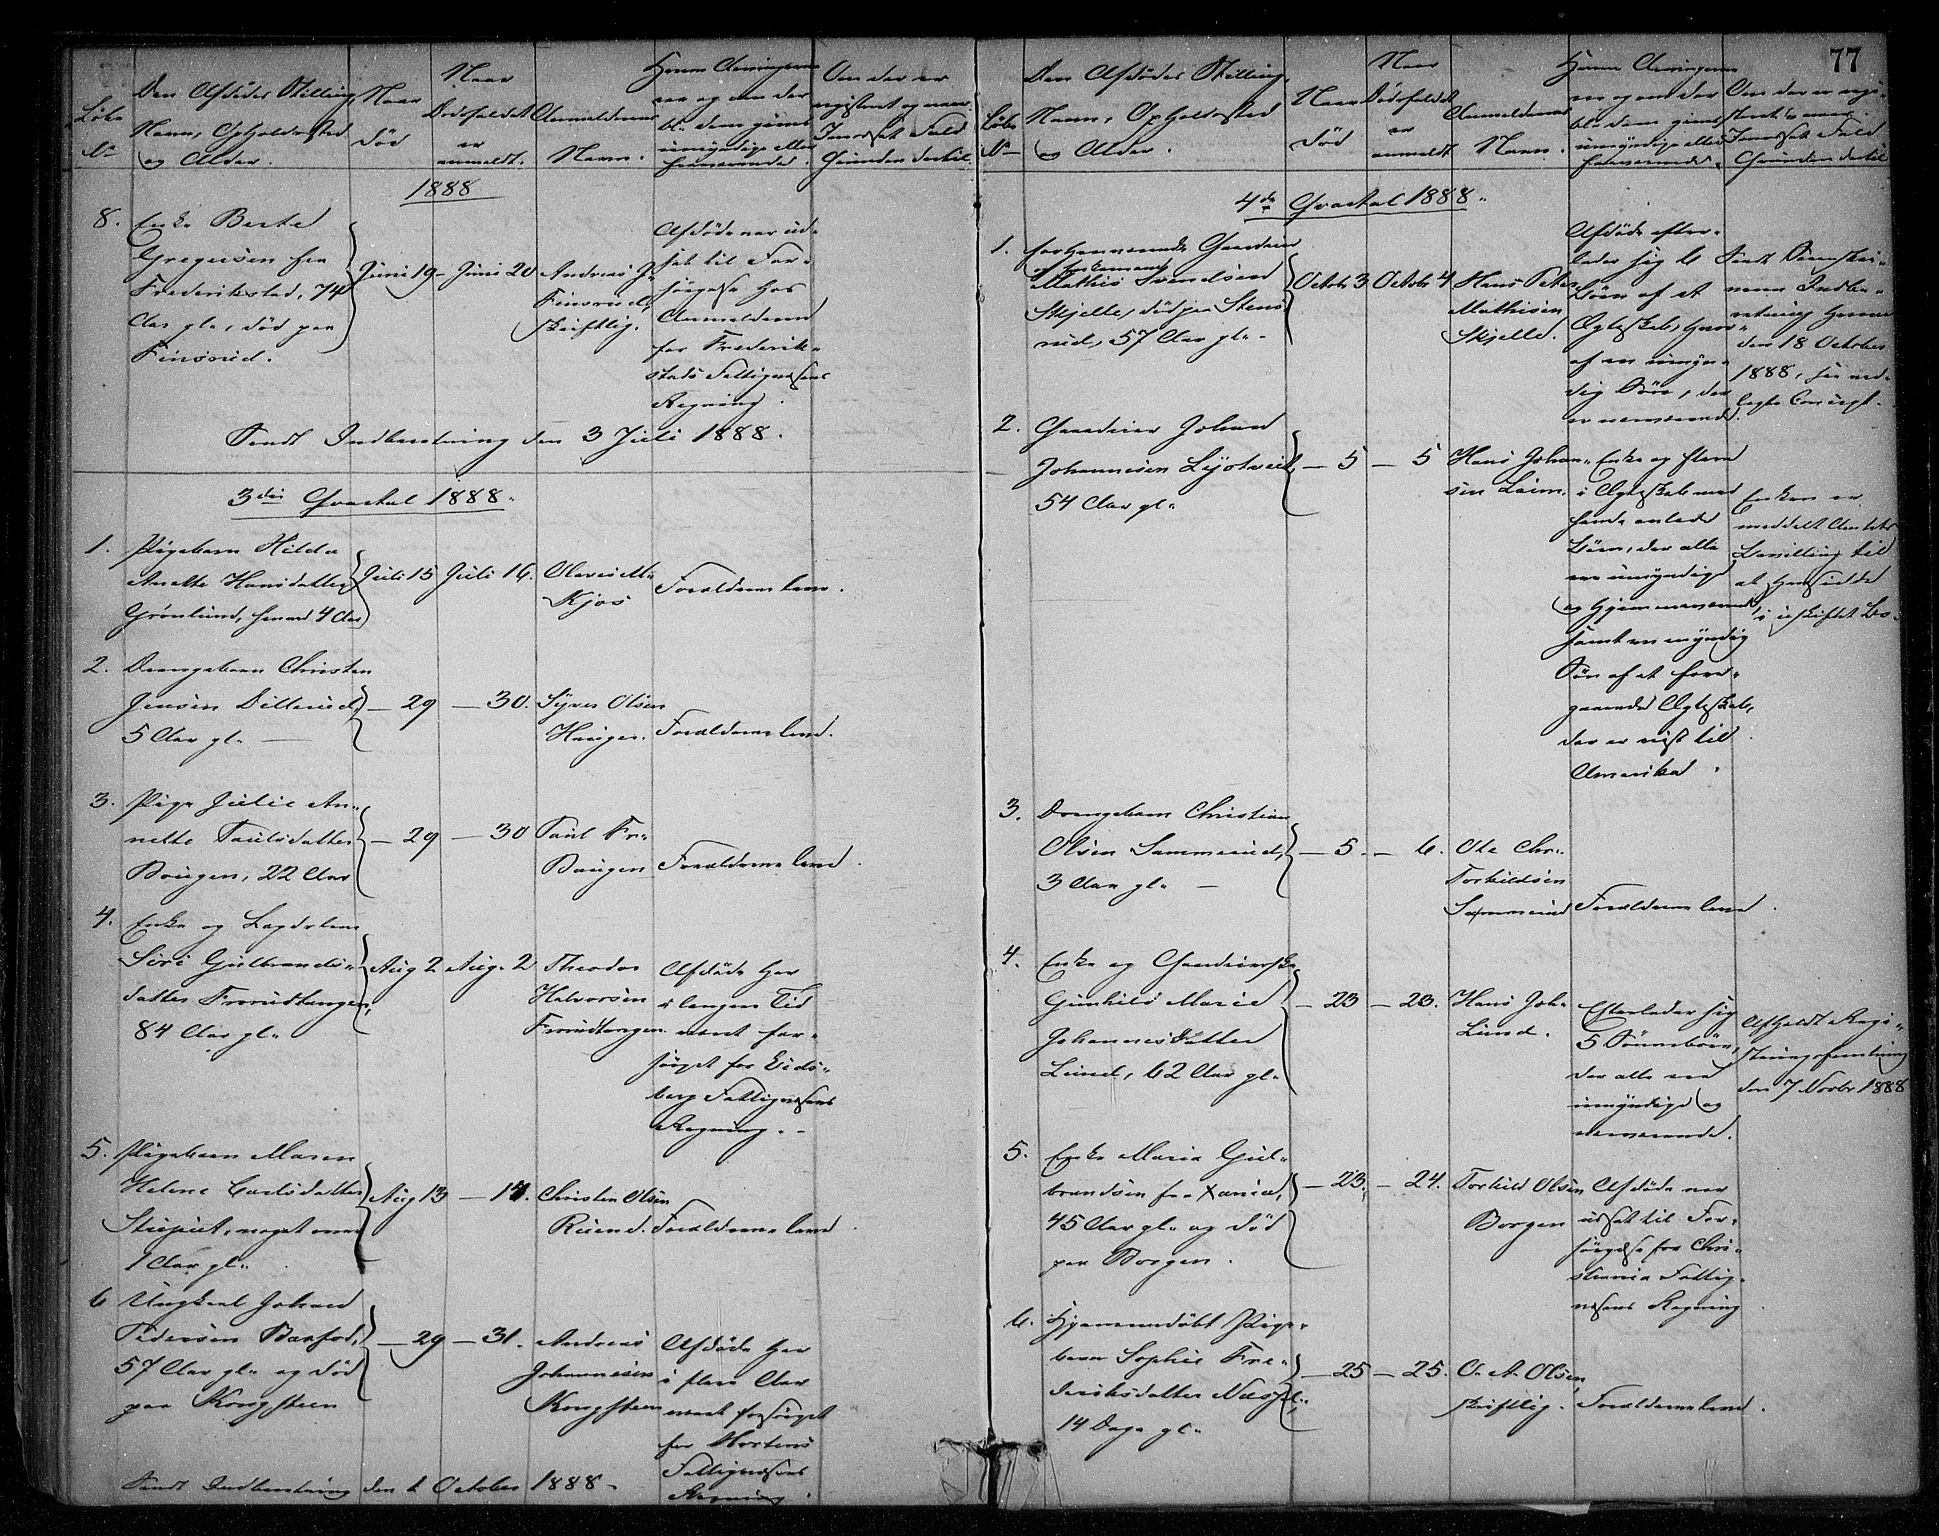 77
Løbe
No
Den Afdødes Stilling,
Navn, Opholdssted
og Alder.
Naar
død
Naar
Dødsfaldet
er
anmeldt.
Anmelderens
Navn.
Hvem Arvingerne
ere og om der
bl. dem gives
umyndige eller
fraværende.
Om der er
registreret og
I modsat Fald
Grunden dertil
1888
8.
Enke Berte
Gregersen fra
Frederikstad, 74
Aar gl., død paa
Finsrud.
Juni 19 - Juni 20
Andreas J.
Finsrud,
skriftlig.
Afdøde var ud-
sat til For-
sørgelse hos
Anmelderen
for Frederik-
stads Fattigvæsens
Regning.
Sendt Indberetning den 3 Juli 1888.
3die Qvartal 1888.
1.
Pigebarn Hilda
Anette Hansdatter
Grønlund, henved 4 Aar
Juli 15 Juli 16.
Olaves M.
Kjos
Forældrene leve.
2.
Drengebarn Christen
Jensen Dillerud,
5 Aar gl. —
— 29 — 30.
Syver Olsen
Hauger.
Forældrene leve.
3.
Pige Julie An-
nette Paulsdatter
Bougen, 22 Aar
— 29 — 30
Paul Fr.
Bougen
Forældrene leve.
4.
Enke og Lægdslem
Siri Gulbrands-
datter Frorudtangen,
84 Aar gl.
Aug 2 Aug. 2
Theodor
Halvorsen
Frorudtangen.
Afdøde har
i længere Tid
været for-
sørget for Eids-
berg Fattigvæsens
Regning. -
5.
Pigebarn Maren
Helene Carlsdatter
noget over
1 Aar gl.
Aug 13 — 14.
Christen Olsen
Ruend.
Forældrene leve.
6
Ungkarl Johan
Pedersen Barfod,
57 Aar gl. og død
paa Kongsteen
— 29 — 31.
Andreas
Johannesen
Kongsteen
Afdøde har
i flere Aar
været forsørget
for Hortens
Fattigvæsens
Regning.
Sendt Indberetning den 1 October 1888 -
Løbe
No
Den Afdødes Stilling,
Navn, Opholdssted
og Alder.
Naar
død
Naar
Dødsfaldet
er
anmeldt
Anmelderens
Navn.
Hvem Arvingerne
ere og om der
bl. dem gives
umyndige eller
fraværende.
Om der er regi-
streret
I modsat Fald
Grunden dertil
4de Qvartal 1888.
1.
forhenværende Gaardeier
og Enkemand
Mathis Svendsen
Skjelle, død paa Stens-
rud, 57 Aar gl. -
Octob 3 Octob 4
Hans Peter
Mathisen
Skjelle.
Afdøde efter-
lader sig 6
Børn af et
Ægteskab, hvor-
af en umyn-
dig Søn, der
er nærværende.
Sendt Overskri-
veren Indbe-
retning herom
den 18 October
1888, see ved-
lagte Concept.
2.
Gaardeier Johan
Johannesen Ljøtveit,
54 Aar gl.
— 5 — 5
Hans Johan-
sen Løim.
Enke og flere
i Ægteskab med
hende avlede
Børn, der alle
ere umyndige
og hjemmeværende,
samt en myndig
Søn af et fore-
gaaende Ægteskab,
der er reist til
Amerika.
Enken er
meddelt Amtets
Bevilling til
at hensidde
i uskiftet Bo.
3.
Drengebarn Christian
Olsen Sammerud,
3 Aar gl. —
— 5. — 6.
Ole Chr.
Torkildsen
Sammerud
Forældrene leve.
4.
Enke og Gaardeierske
Gunhild Marie
Johannesdatter
Lund, 62 Aar gl.
— 23 — 23.
Hans Joh.
Lund.
Efterlader sig
5 Sønnebørn,
der alle ere
umyndige og
nærværende.
Afholdt Regi-
streringsforretning
den 7 Novbr 1888
5.
Enke Maria Gul-
brandsen fra Xania,
45 Aar gl. og død
paa Borgen.
— 23. — 24.
Torkild Olsen
Borgen
Afdøde var
udsat til For-
sørgelse fra Chri-
stiania Fattig-
væsens Regning
6.
Hjemmedøbt Pige-
barn Sophie Fre-
deriksdatter
14 Dage gl.
— 25 — 25.
O. A. Olsen,
skriftlig.
Forældrene leve.